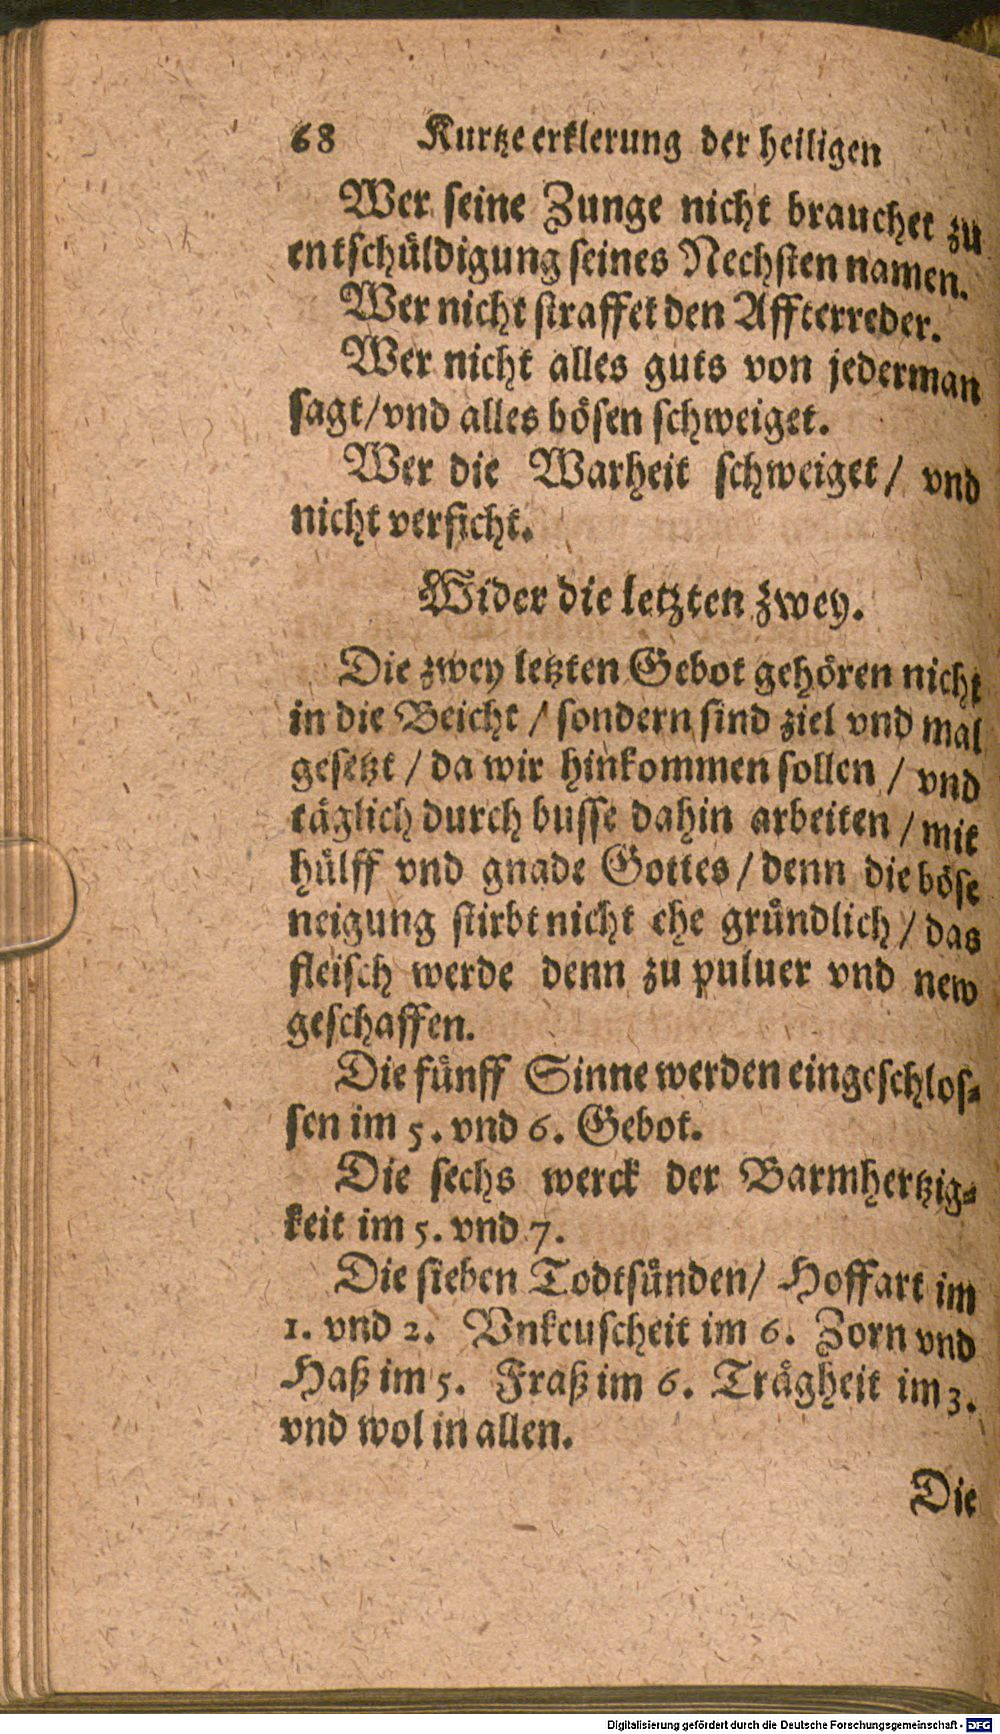 68 Kurtze erklerung der heiligen
Wer seine Zunge nicht brauchet zu
entschüldigung seines Nechsten namen.
Wer nicht straffet den Affterreder.
Wer nicht alles guts von jederman
sagt/vnd alles bösen schweiget.
Wer die Warheit schweiget/ vnd
nicht verficht.
Wider die letzten zwey.
Die zwey letzten Gebot gehören nicht
in die Beicht / sondern sind ziel vnd mal
gesetzt / da wir hinkommen sollen / vnd
täglich durch busse dahin arbeiten / mit
hülff vnd gnade Gottes / denn die böse
neigung stirbt nicht ehe gründlich / das
fleisch werde denn zu puluer vnd new
geschaffen.
Die fünff Sinne werden eingeschlos-
sen im 5. vnd 6. Gebot.
Die sechs werck der Barmhertzig-
keit im 5. vnd 7.
Die sieben Todtsünden/ Hoffart im
1. vnd 2. Vnkeuscheit im 6. Zorn vnd
Haß im 5. Fraß im 6. Trägheit im 3.
vnd wol in allen.
Die
Digitalisierung gefördert durch die Deutsche Forschungsgemeinschaft - DFG